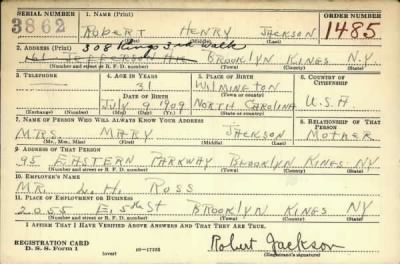 SERIAL NUMBER 1. NAME (Print) ORDER NUMBER
3862 ROBERT HENRY JACKSON 1485
(First) (Middle) (Last)
2. ADDRESS (Print) 308 Kings 3rd Walk
JEFFERSON AV. BROOKLYN KINGS N.Y.
(Number and street or R. F. D. number) (Town) (County) (State)
3. TELEPHONE 4. AGE IN YEARS 5. PLACE OF BIRTH 6. COUNTRY OF CITIZENSHIP
31 WILMINGTON
DATE OF BIRTH (Town or county)
JULY 9 1909 NORTH CAROLINA U.S.A
(Exchange) (Number) (Mo.) (Day) (Yr.) (State or country)
7. NAME OF PERSON WHO WILL ALWAYS KNOW YOUR ADDRESS 8. RELATIONSHIP OF THAT PERSON
MRS. MARY JACKSON MOTHER
(Mr., Mrs., Miss) (First) (Middle) (Last)
9. ADDRESS OF THAT PERSON
95 EASTERN PARKWAY BROOKLYN KINGS NY
(Number and street or R. F. D. number) (Town) (County) (State)
10. EMPLOYER'S NAME
MR. L. H. ROSS
11. PLACE OF EMPLOYMENT OR BUSINESS
2055 E. 5th St BROOKLYN KINGS NY
(Number and street or R. F. D. number) (Town) (County) (State)
I AFFIRM THAT I HAVE VERIFIED ABOVE ANSWERS AND THAT THEY ARE TRUE.
REGISTRATION CARD
D. S. S. Form 1 (over) 16—17105 Robert Jackson
(Registrant's signature)